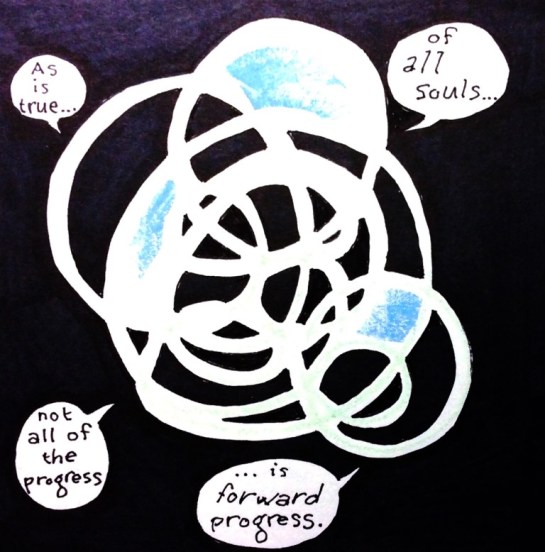 As
is
true...
of
all
souls...
not
all of
the
progress
... is
forward
progress.